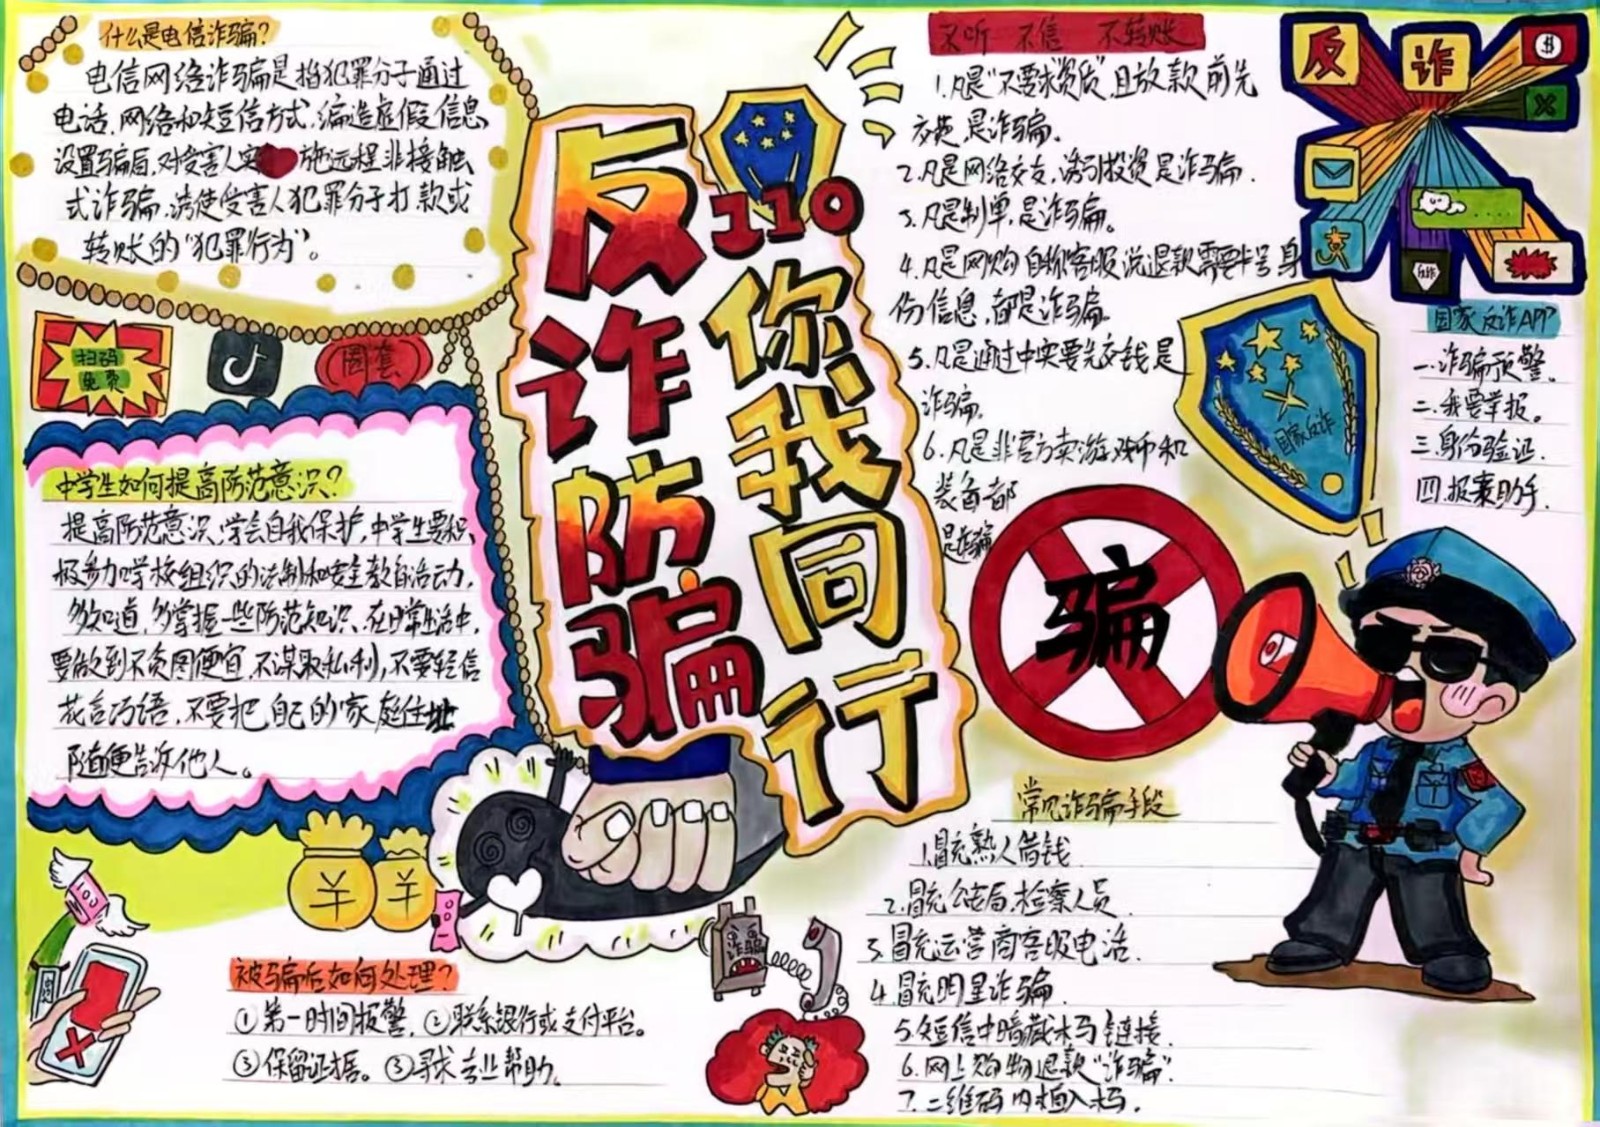 什么是电信诈骗?
电信网络诈骗是指犯罪分子通过
电话、网络和短信方式,编造虚假信息,
设置骗局,对受害人实施远程非接触
式诈骗,诱使受害人犯罪分子打款或
转账的“犯罪行为”。
扫码
免费
圈套
中学生如何提高防范意识?
提高防范意识,学会自我保护,中学生要积
极参加学校组织的法制和安全教育活动,
多知道,多掌握一些防范知识、在日常生活中,
要做到不贪图便宜、不谋取私利,不要轻信
花言巧语,不要把自己的家庭住址
随便告诉他人。
被骗后如何处理?
①第一时间报警,②联系银行或支付平台。
③保留证据。③寻求专业帮助。
反诈防骗
110
你我同行
诈骗
不听 不信 不转账
1.凡是“不要求资质”且放款前先
交费,是诈骗。
2.凡是网络交友,诱引投资是诈骗.
3.凡是刷单,是诈骗。
4.凡是网购自称客服说退款需要卡号身
份信息,都是诈骗
5.凡是通过中奖要先交钱是
诈骗.
6.凡是非官方卖游戏币和
装备都
是诈骗
骗
反诈
国家反诈
国家反诈APP
一.诈骗预警。
二.我要举报。
三.身份验证.
四.报案助手.
常见诈骗手段
1.冒充熟人借钱
2.冒充公安局,检察人员.
3.冒充运营商客服电话.
4.冒充明星诈骗.
5.短信中暗藏木马链接.
6.网上购物退款“诈骗”.
7.二维码内植入木马.